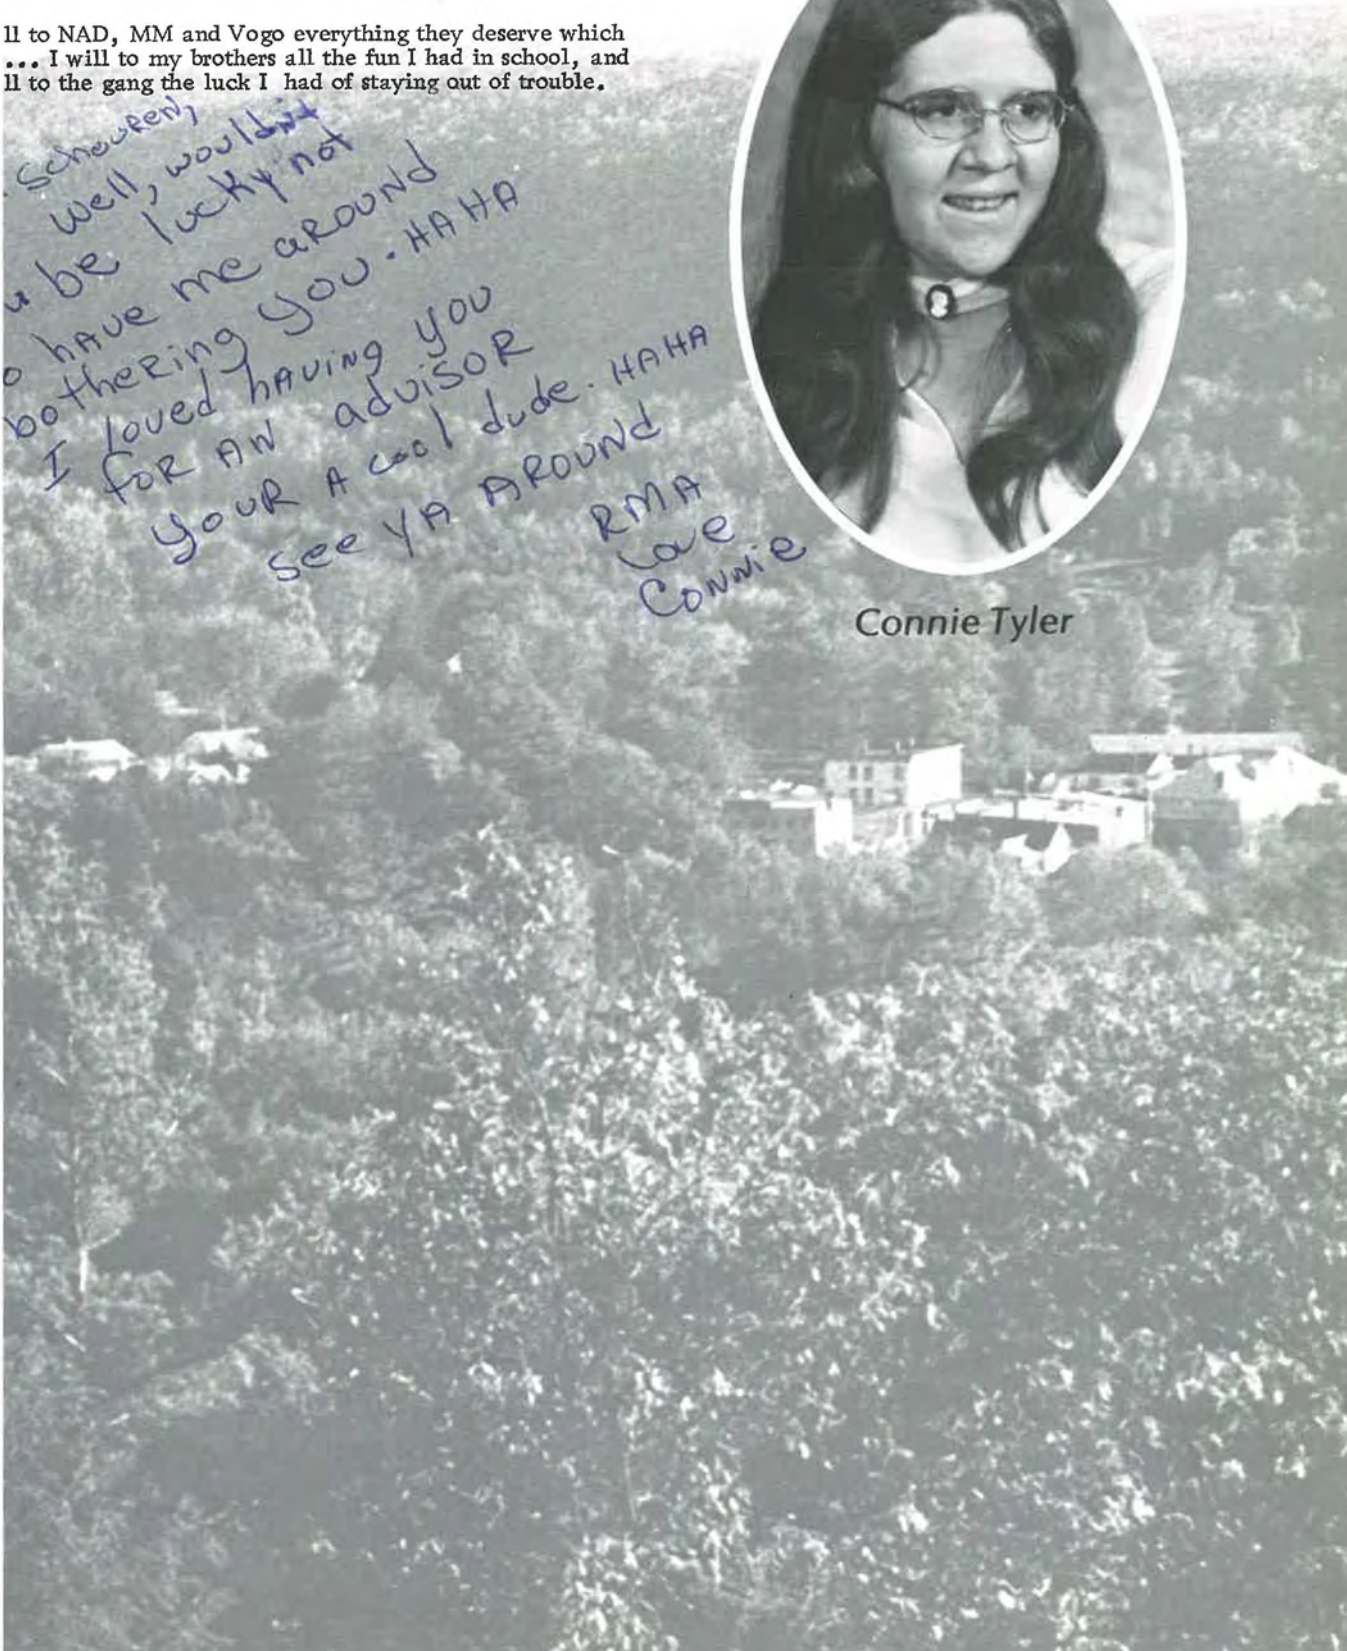 ll to NAD, MM and Vogo everything they deserve which
... I will to my brothers all the fun I had in school, and
ll to the gang the luck I had of staying out of trouble.
Schouren,
well, wouldn't
u be lucky not
o have me around
bothering you. HA HA
I loved having you
for an advisor
your a cool dude. HAHA
see ya around
RMA
Love
Connie
Connie Tyler